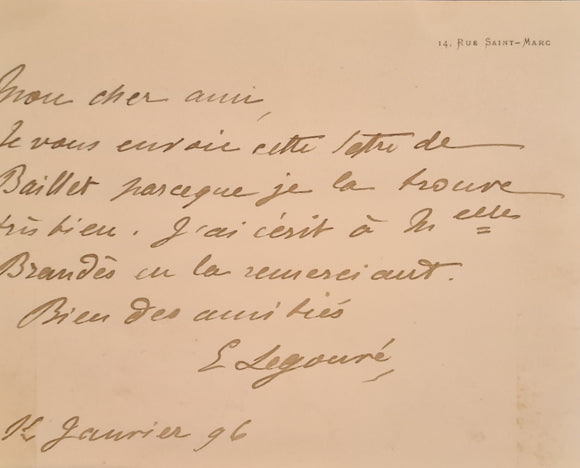 14, Rue Saint-Marc
Mon cher ami,
Je vous envoie cette lettre de
Baillet parceque je la trouve
très bien. J'ai écrit à Melle
Brandès en la remerciant.
Bien des amitiés
E Legouvé
Janvier 96